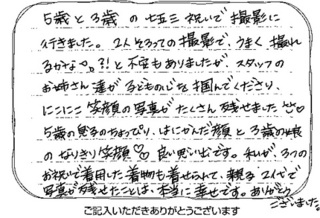 5歳と3歳の七五三祝いで撮影に
行きました。2人そろっての撮影で、うまく撮れ
るかな…?!と不安もありましたが、スタッフの
お姉さん達が子どもの心を掴んでくださり、
にこにこ笑顔の写真がたくさん残せました
5歳の息子のちょっぴりはにかんだ顔と3歳の娘
のなりきり笑顔♡良い思い出です。私が、3つの
お祝いで着用した着物も着せられて、親子2代で
写真が残せたことは、本当に幸せです。ありがとう
ございました。
ご記入いただきありがとうございます